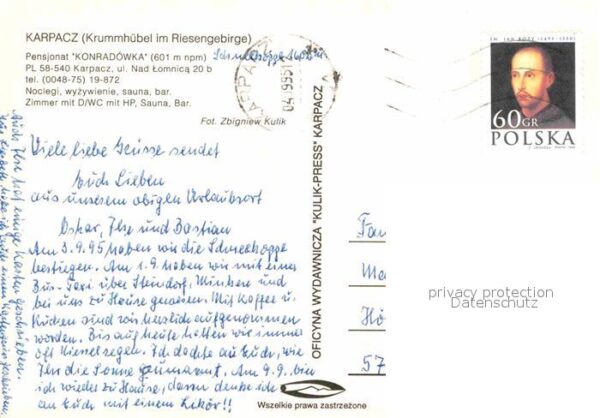 KARPACZ (Krummhübel im Riesengebirge)
Pensjonat "KONRADÓWKA" (601 m npm)
PL 58-540 Karpacz, ul. Nad Łomnicą 20 b
tel. (0048-75) 19-872
Noclegi, wyżywienie, sauna, bar.
Zimmer mit D/WC mit HP, Sauna, Bar.
Fot. Zbigniew Kulik
Viele liebe Grüsse sendet
Euch Lieben
aus unserem obigen Urlaubsort
Oskar, Ilse und Bastian
Am 3.9.95 haben wir die Schneekoppe
bestiegen. Am 1.9. haben wir mit einem
Bus-Taxi über Steindorf, und
bei uns zu Hause gewesen. Mit Kaffee u.
Kuchen sind wir herzlich aufgenommen
worden. Bis auf heute hatten wir immer
oft Nieselregen. Ich dachte an Euch, wie
Ihr die Sonne. Am 9.9. bin
ich wieder zu Hause, dann denke ich
an Euch mit einem Likör!!
Auch Ilse hat einige Karten geschrieben.
OFICYNA WYDAWNICZA "KULIK-PRESS" KARPACZ
Wszelkie prawa zastrzeżone
KARPACZ
60 GR
POLSKA
Fam
Me
Hö
57
privacy protection
Datenschutz